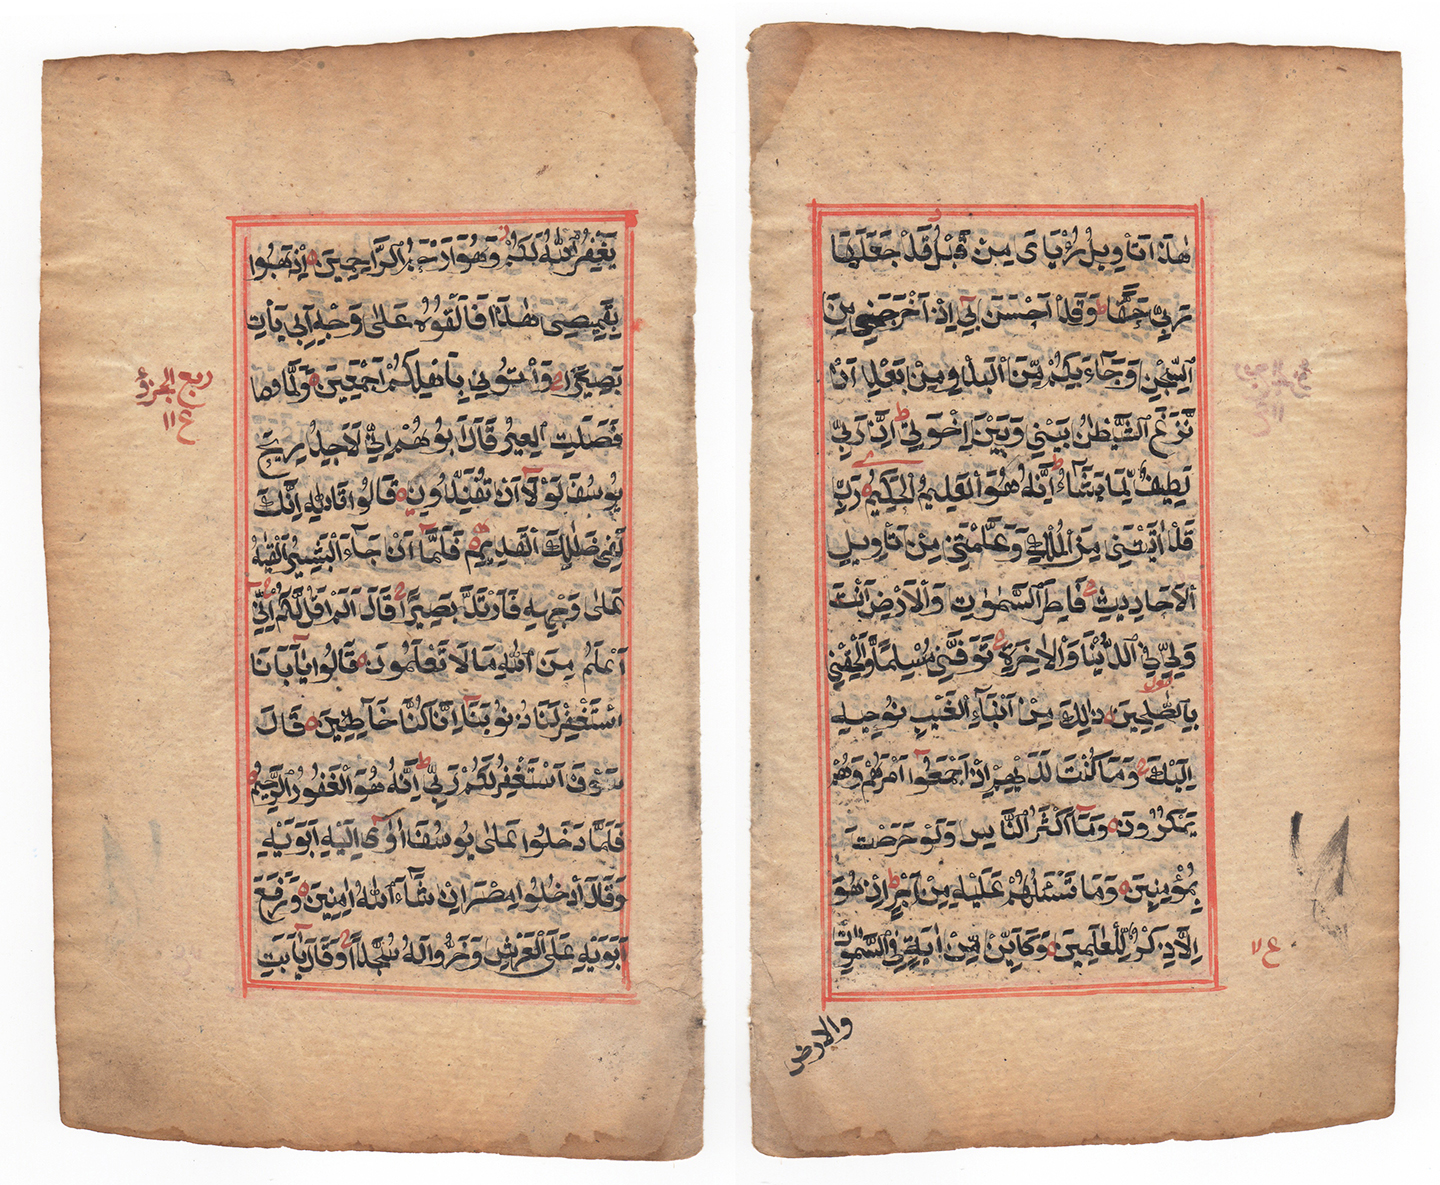 يغفر الله لكم وهو ارحم الراحمين اذهبوا
بقميصي هذا فالقوه على وجه ابي يأت
بصيرا وأتوني باهلكم اجمعين ولما
فصلت العير قال ابوهم اني لاجد ريح
يوسف لولا ان تفندون قالوا تالله انك
لفي ضللك القديم فلما ان جاء البشير القيه
على وجهه فارتد بصيرا قال الم اقل لكم اني
اعلم من الله ما لا تعلمون قالوا يا ابانا
استغفر لنا ذنوبنا انا كنا خاطئين قال
سوف استغفر لكم ربي انه هو الغفور الرحيم
فلما دخلوا على يوسف اوى اليه ابويه
وقال ادخلوا مصر ان شاء الله امنين ورفع
ابويه على العرش وخروا له سجدا وقال يا ابت
ربع الجزؤ
ع ١١
هذا تاويل رؤياى من قبل قد جعلها
ربي حقا وقد احسن بي اذ اخرجني من
السجن وجاء بكم من البدو من بعد ان
نزغ الشيطن بيني وبين اخوتي ان ربي
لطيف لما يشاء انه هو العليم الحكيم رب
قد اتيتني من الملك وعلمتني من تاويل
الاحاديث فاطر السموت والارض انت
وليي في الدنيا والاخرة توفني مسلما والحقني
بالصلحين ذلك من انباء الغيب نوحيه
اليك وما كنت لديهم اذ اجمعوا امرهم وهم
يمكرون وما اكثر الناس ولو حرصت
بمؤمنين وما تسئلهم عليه من اجر ان هو
الا ذكر للعلمين وكاين من اية في السموت
والارض